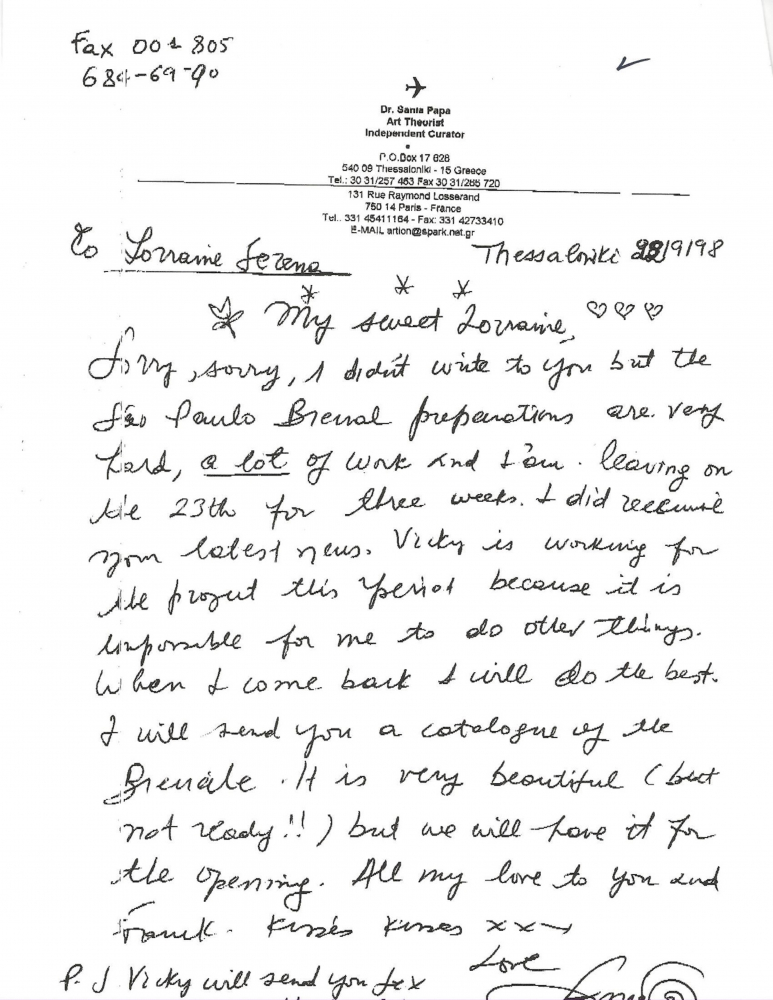 Fax 001 805
684-69-90
Dr. Sania Papa
Art Theorist
Independent Curator
P.O.Box 17 828
540 09 Thessaloniki - 15 Greece
Tel.: 30 31/257 463 Fax 30 31/265 720
131 Rue Raymond Losserand
750 14 Paris - France
Tel.. 331 45411164 - Fax: 331 42733410
E-MAIL artion@spark.net.gr
To Lorraine Serena
Thessaloniki /9/98
My sweet Lorraine,
Sorry, sorry, I didn't write to you but the
São Paulo Biennal preparations are very
hard, a lot of work and I am leaving on
the 23th for three weeks. I did receive
your latest news. Vicky is working for
the project this period because it is
impossible for me to do other things.
When I come back I will do the best.
I will send you a catalogue of the
Biennale. It is very beautiful (but
not ready!!) but we will have it for
the openning. All my love to you and
Frank. Kisses Kisses xxx
Love
P.S Vicky will send you fax